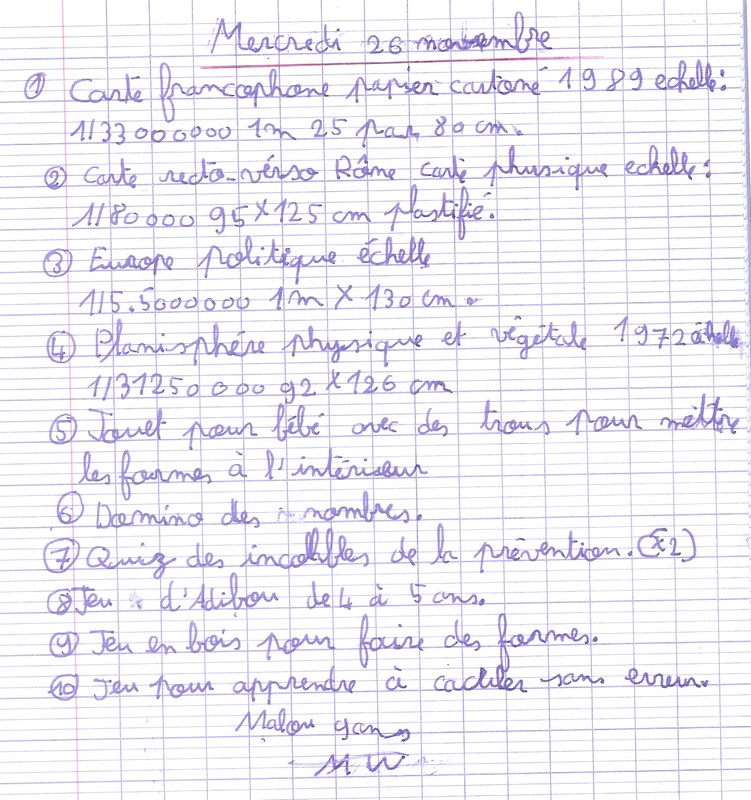 Mercredi 26 novembre
① Carte francophone papier cartoné 1989 echelle:
1/33000000 1m 25 par 80 cm.
② Carte recto-verso Rôme carte physique echelle:
1/80000 95 x 125 cm plastifié.
③ Europe politique échelle
1/5.5000000 1m x 130 cm.
④ Planisphére physique et végétale 1972 échelle
1/31250000 92 x 126 cm
⑤ Jouet pour bébé avec des trous pour mettre
les formes à l'intérieur
⑥ Domino des nombres.
⑦ Quiz des incollables de la prévention. (x2)
⑧ Jeu d'Adibou de 4 à 5 ans.
⑨ Jeu en bois pour faire des formes.
⑩ Jeu pour apprendre à caculer sans erreur.
Malou
M W